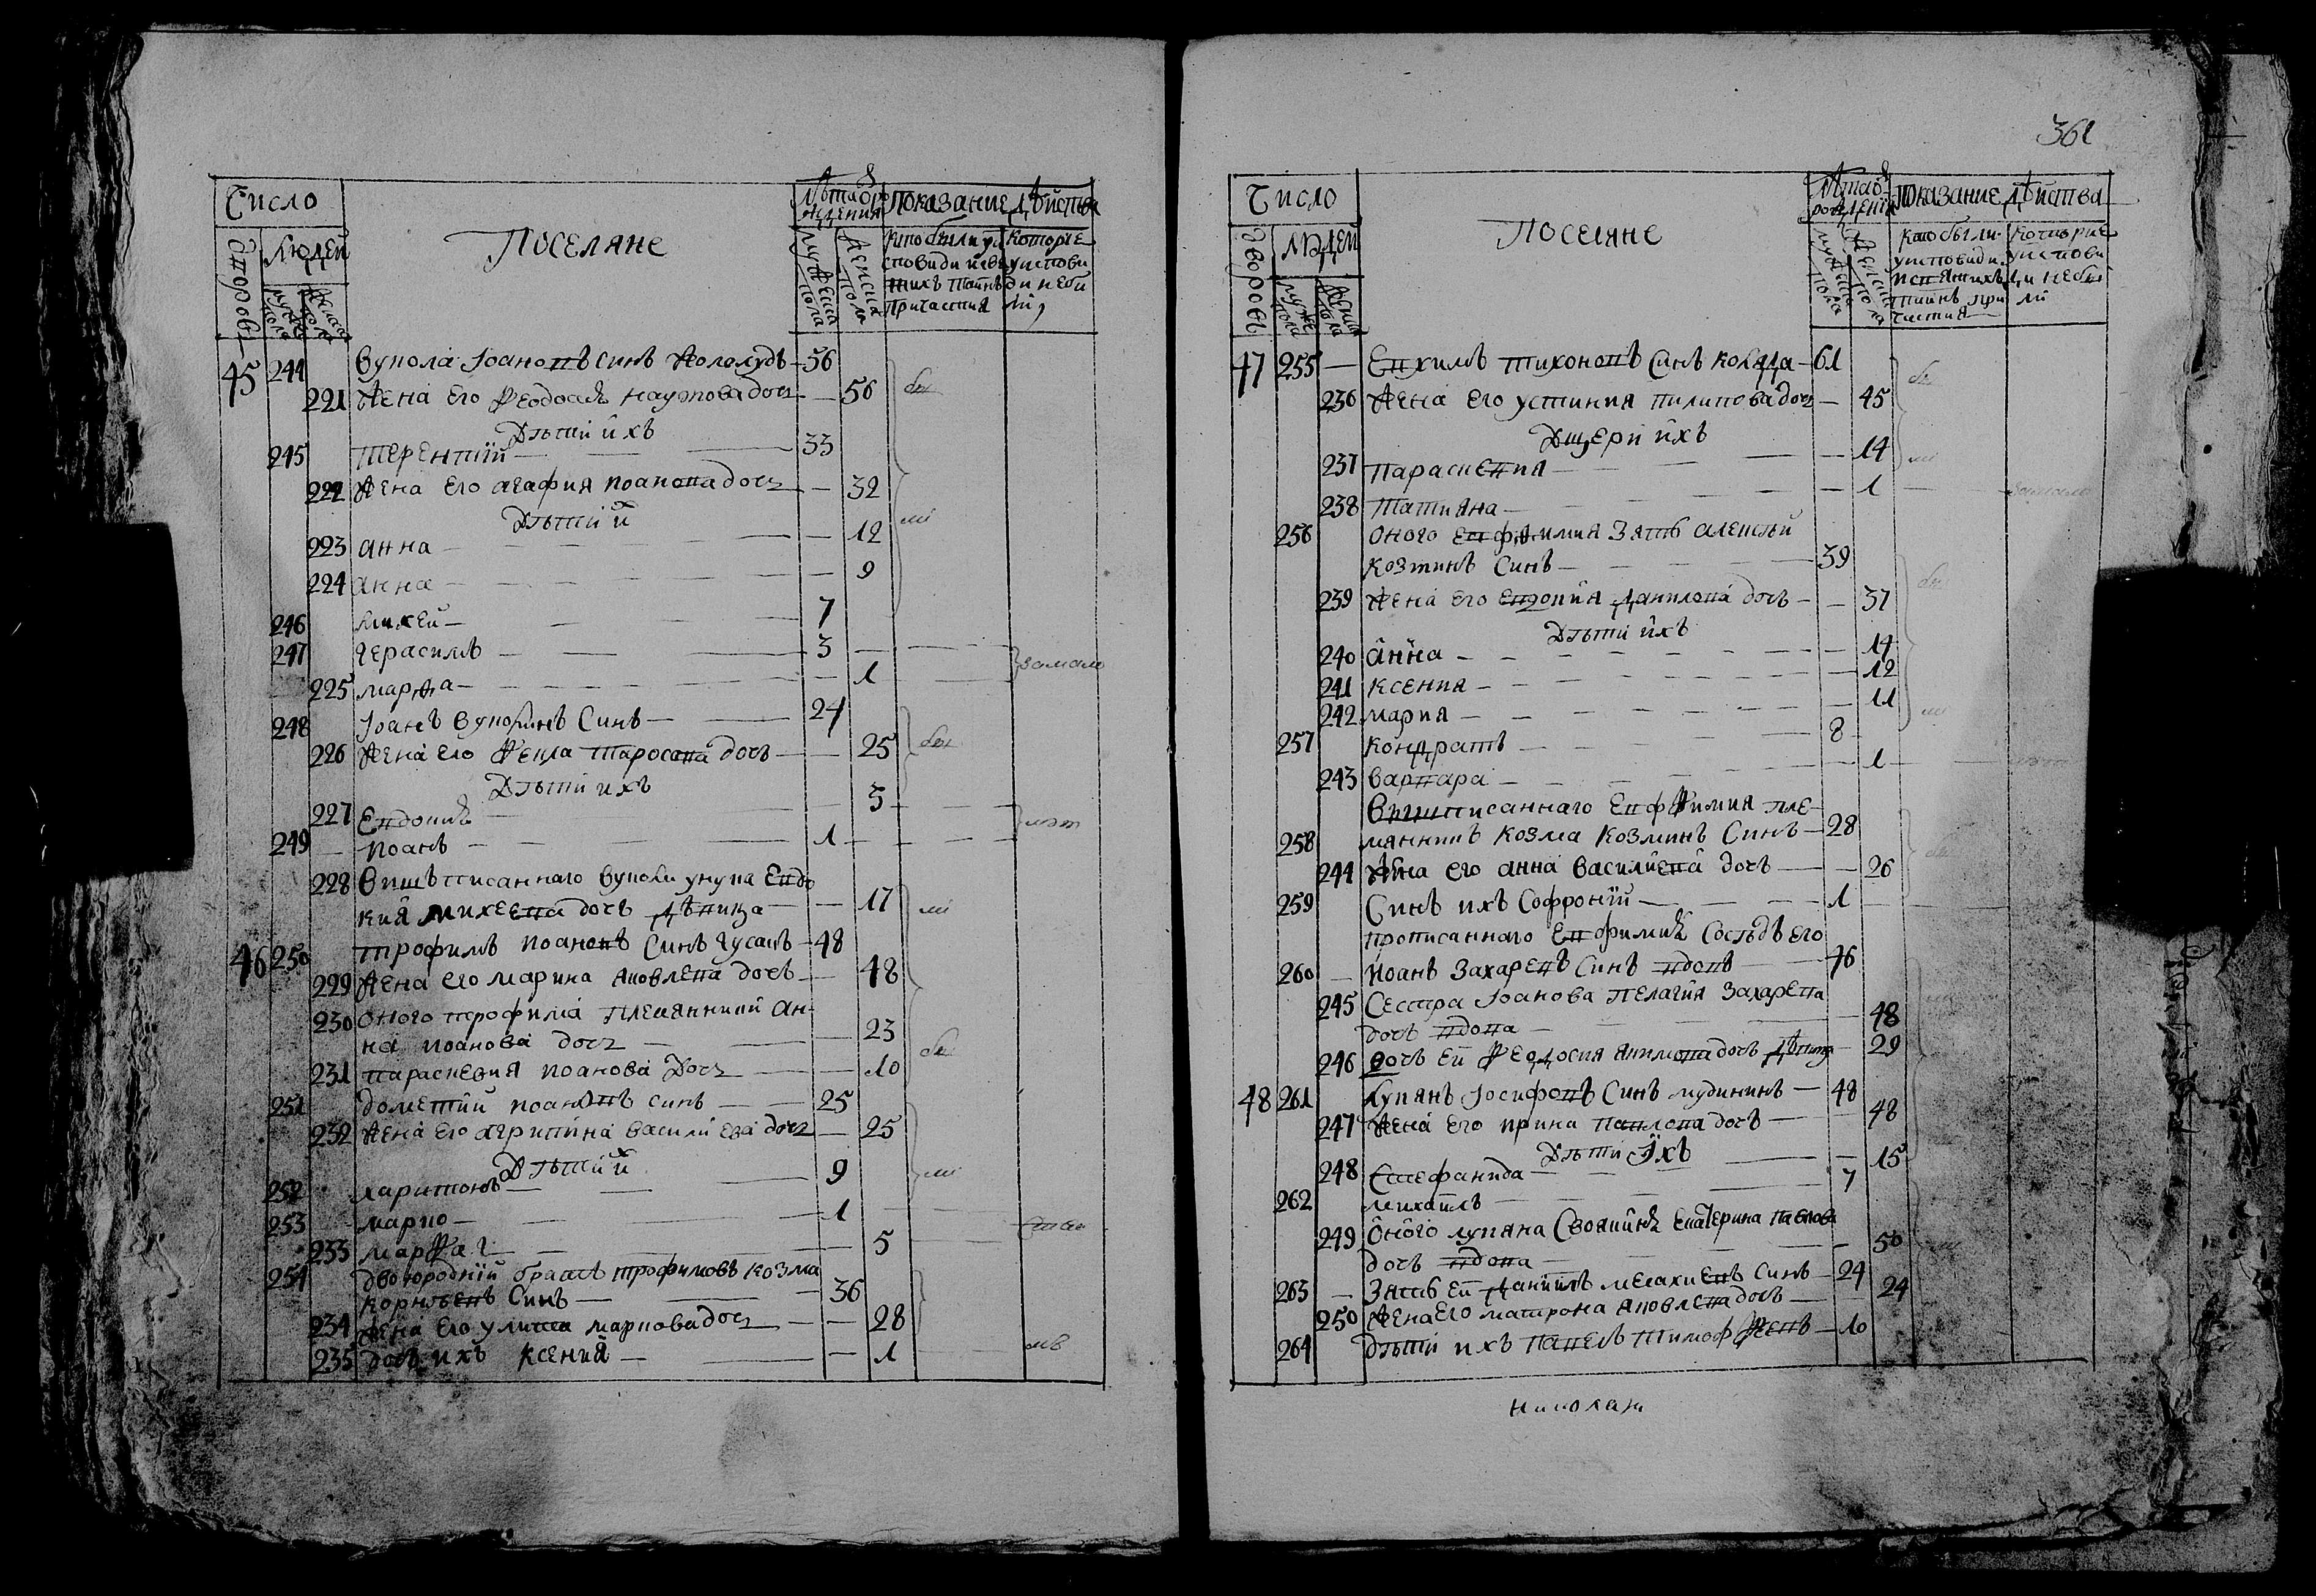 Число
Поселяне
Лѣта от рождения
Показание дѣйства
дворовъ
Людей
мужеска пола
женска пола
мужеска пола
женска пола
которие
сповиди и свя
у исповѣ
тихъ таинъ
ди неби
причастия
ли,
45 244 Вукола Іоановъ синъ Холодудъ 56
221 Жена его Феодосія Наумова дочь 56
Дѣти ихъ
245 Терентїй 33
222 Жена его Агафия Иоанова дочь 32
Дѣти и
223 Анна 12
224 Анна 9
246 Михей 7
247 Герасимъ 3
225 Марѳа 1 замало
248 Іоанъ Вуколинъ Синъ 24
226 Жена его Фекла Тарасова дочь 25
Дѣти ихъ
227 Евдокия 5
249 Иоанъ 1
228 Вишъписаннаго Вуколи унука Евдо
кия Михеева дочъ дѣвица 17
46 250 Трофимъ Иоановъ Синъ Гусакъ 48
229 Жена его Марина Яковлева дочъ 48
230 Оного Трофима племянники Ан-
на Иоанова дочъ 23
231 Параскевия Иоанова дочъ 10
251 Дометий Иоановъ синъ 25
232 Жена его Агрипина Василиева дочъ 25
Дѣти и
252 Харитонъ 9
253 Марко 1
233 Марфа 5
254 двоюроднїй братъ Трофимовъ Козма
Корнѣевъ Синъ 36
234 Жена его Улита Маркова дочъ 28
235 Дочъ ихъ Ксения 1
361
Число
Поселяне
Лѣта от рождения
Показание дѣйства
дворовъ
людей
мужеска пола
женска пола
мужеска пола
женска пола
кто были
которие
у исповиди
у исповѣ
и святихъ
ди небы
таинъ при
ли
частия
47 255 Евхимъ Тихоновъ Синъ Коляда 61
236 Жена его Устиния Пилипова дочъ 45
Дщери ихъ
237 Параскевия 14
238 Татияна 1
256 Оного Евфимия Зять Алексѣй
Козминъ Синъ 39
239 Жена его Евдокия Данилова дочъ 37
Дѣти ихъ
240 Анна 14
241 Ксения 12
242 Мария 11
257 Кондратъ 8
243 Варвара 1
Вишписаннаго Евфимия пле-
258 мянникъ Козма Козминъ Синъ 28
244 Жена его Анна Василиева дочъ 26
259 Синъ ихъ Софронїй 1
прописаннаго Евфимия Сосѣдъ его
260 Иоанъ Захаревъ Синъ вдовъ 76
245 Сестра Іоанова Пелагия Захарева
дочъ вдова 48
246 Дочъ ей Феодосия Якимова дочъ дѣвица 29
48 261 Лукянъ Іосифовъ Синъ Мудиникъ 48
247 Жена его Ирина Павлова дочъ 48
Дѣти Їхъ
248 Стефанида 15
262 Михаилъ 7
249 Оного Лукяна Своячиня Екатерина Павлова
дочъ вдова 50
263 Зять ей Даниилъ Малахиевъ синъ 24
250 Жена его Матрона Яковлева дочъ 24
264 Дѣти ихъ Павелъ Тимофѣевъ 10
Николай